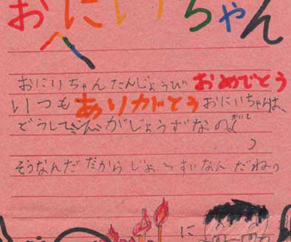 おにいちゃん
おにいちゃんたんじょうび おめでとう
いつも ありがとう おにいちゃんは、
どうして がじょうずなの
そうなんだ だからじょーずなんだね。
に